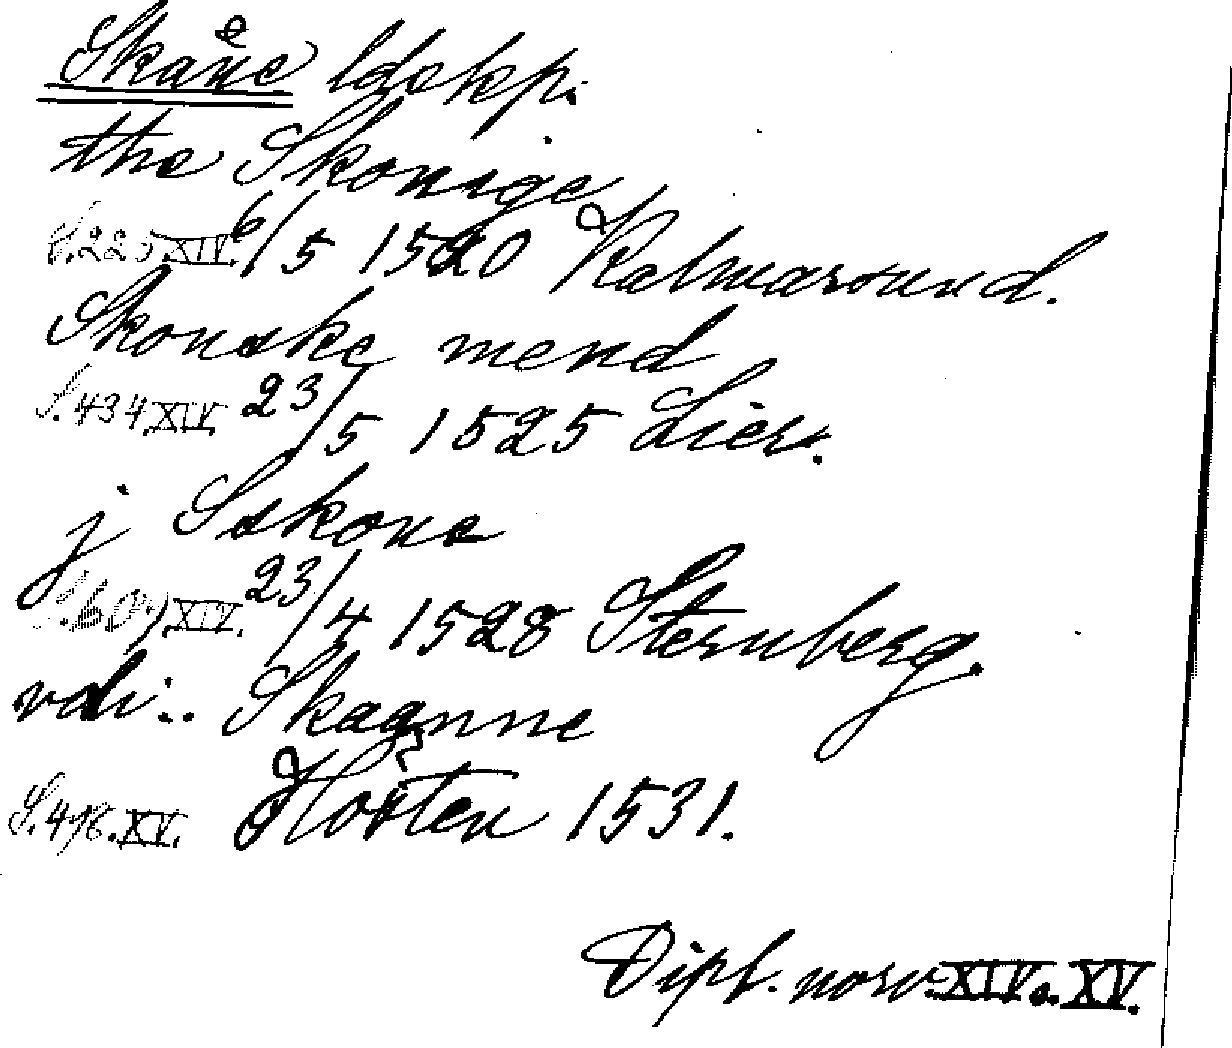 Skåne ldskp.
the Skonige
S. 225 XIV. 6/5 1520 Kalmarsund.
Skonske mend
S. 434 XIV. 23/5 1525 Lier.
j Sskone
XIV. 23/4 1528 Sternberg.
vdi:. Skaanne
S. 498. XV. Hösten 1531.
Dipl. norv. XIV. o. XV.